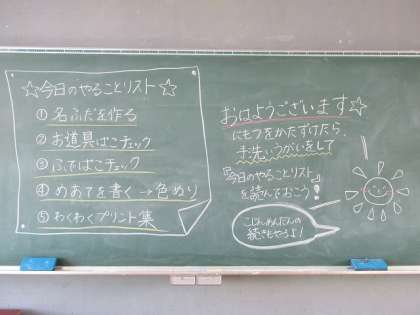 ☆今日のやることリスト☆
① 名ふだを作る
② お道具ばこチェック
③ ふでばこチェック
④ めあてを書く→色ぬり
⑤ わくわくプリント集
おはようございます☆
にもつをかたずけたら、
手洗いうがいをして
『今日のやることリスト』
を読んでおこう!
こじんめんだんの
続きもやるよ!